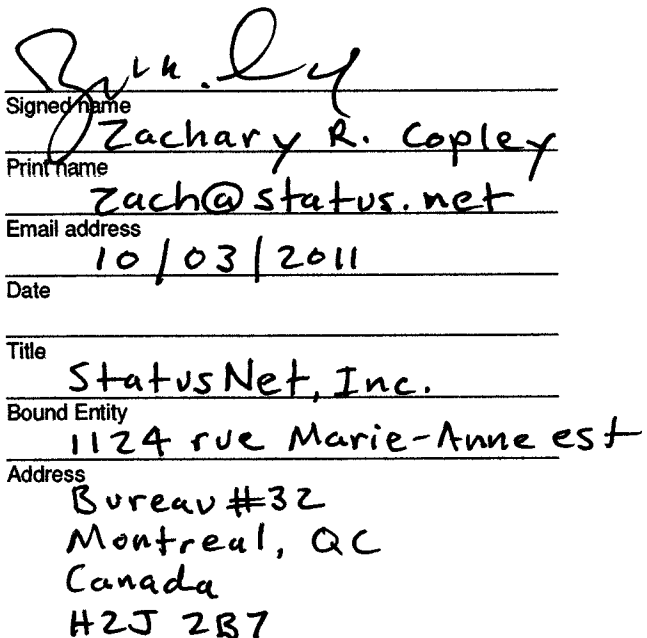 Signed name
Zachary R. Copley
Print name
zach@status.net
Email address
10/03/2011
Date
Title
StatusNet, Inc.
Bound Entity
1124 rue Marie-Anne est
Address
Bureau #32
Montreal, QC
Canada
H2J 2B7